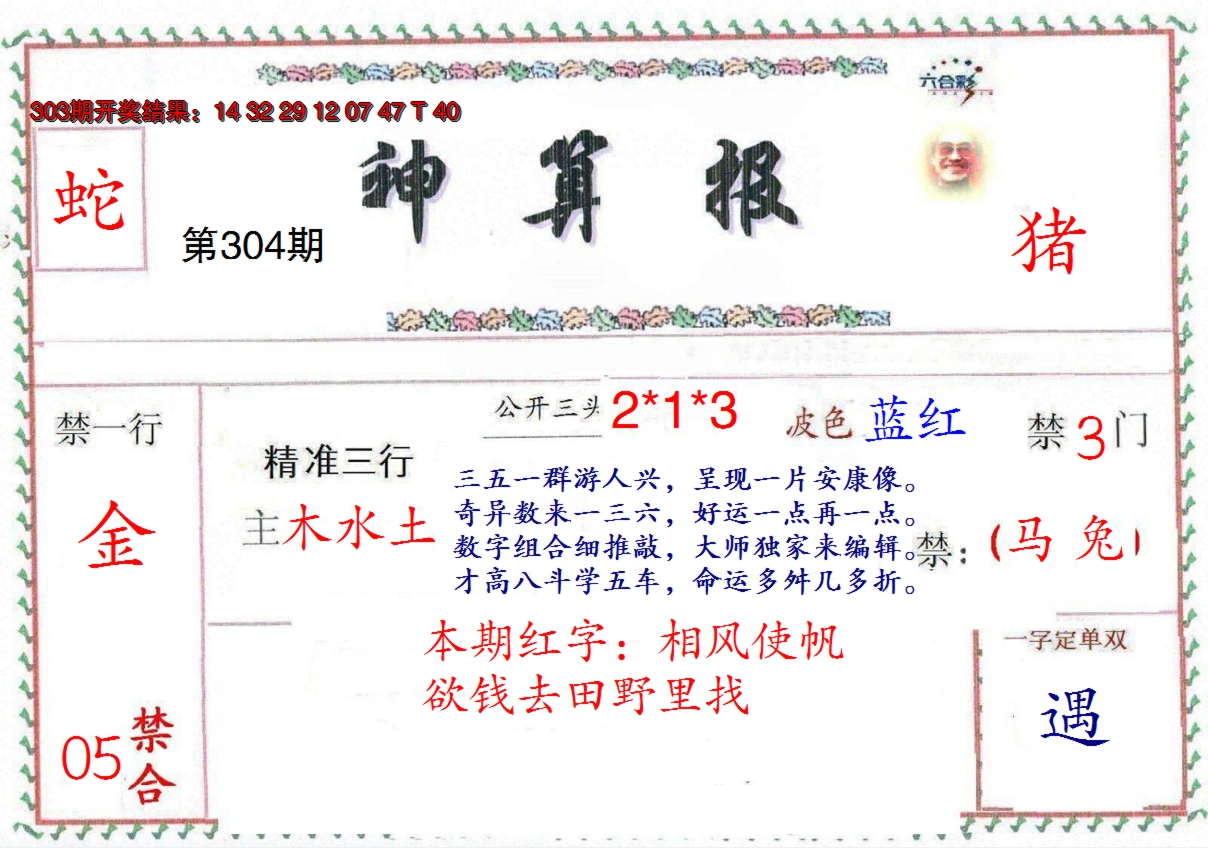 六合彩
303期开奖结果：14 32 29 12 07 47 T 40
神算报
蛇
第304期
猪
公开三头 2*1*3
波色 蓝红
禁一行
金
05 禁合
精准三行
主木水土
三五一群游人兴，呈现一片安康像。
奇异数来一三六，好运一点再一点。
数字组合细推敲，大师独家来编辑。
才高八斗学五车，命运多舛几多折。
禁3门
禁：（马 兔）
本期红字：相风使帆
欲钱去田野里找
一字定单双
遇